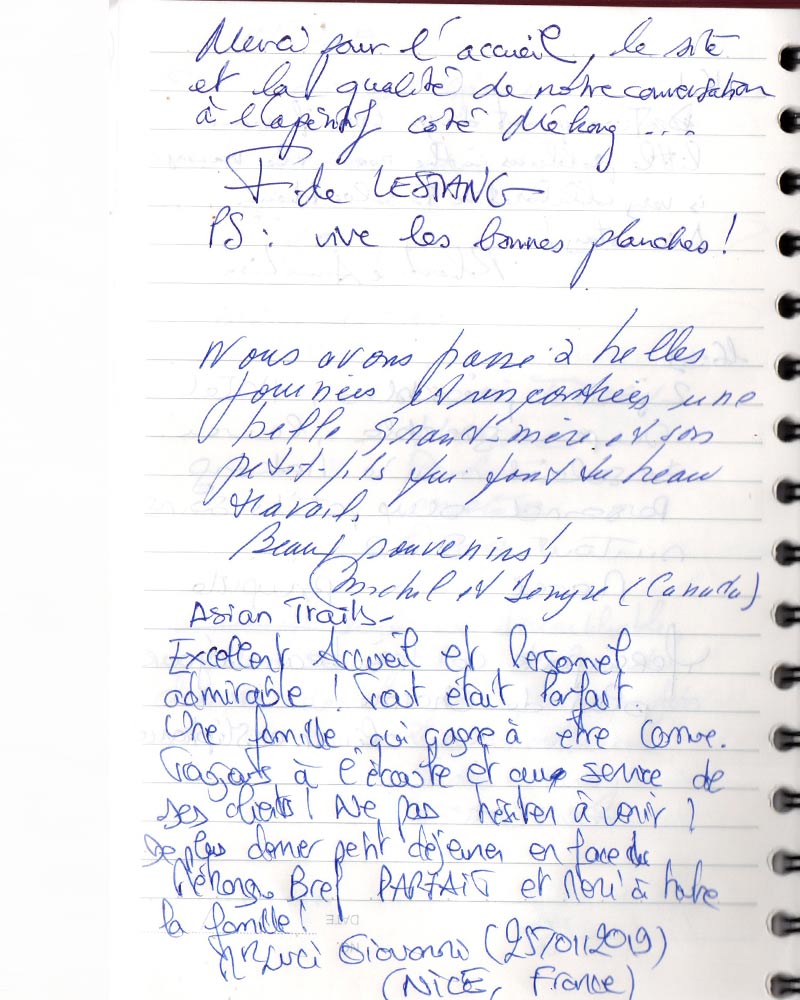 Merci pour l'accueil, le site
et la qualité de notre conversation
à l'apéritif coté Mékong ...
F. de LESTANG
PS : vive les bonnes planches !
Nous avons passé 2 belles
journées et rencontrées une
belle grand-mère et son
petit-fils qui font du beau
travail.
Beaux souvenirs !
Michel et Denyse (Canada)
Asian Trails-
Excellent Accueil et Personnel
admirable ! Tout était Parfait.
Une famille qui gagne à etre connue.
Toujours à l'écoute et aux service de
ses clients ! Ne pas hésiter à venir !
De plus donner petit déjeuner en face du
Mékong. Bref PARFAIT et Merci à toute
la famille !
Giovanni (25/01/2019)
(NICE, France)
DATE